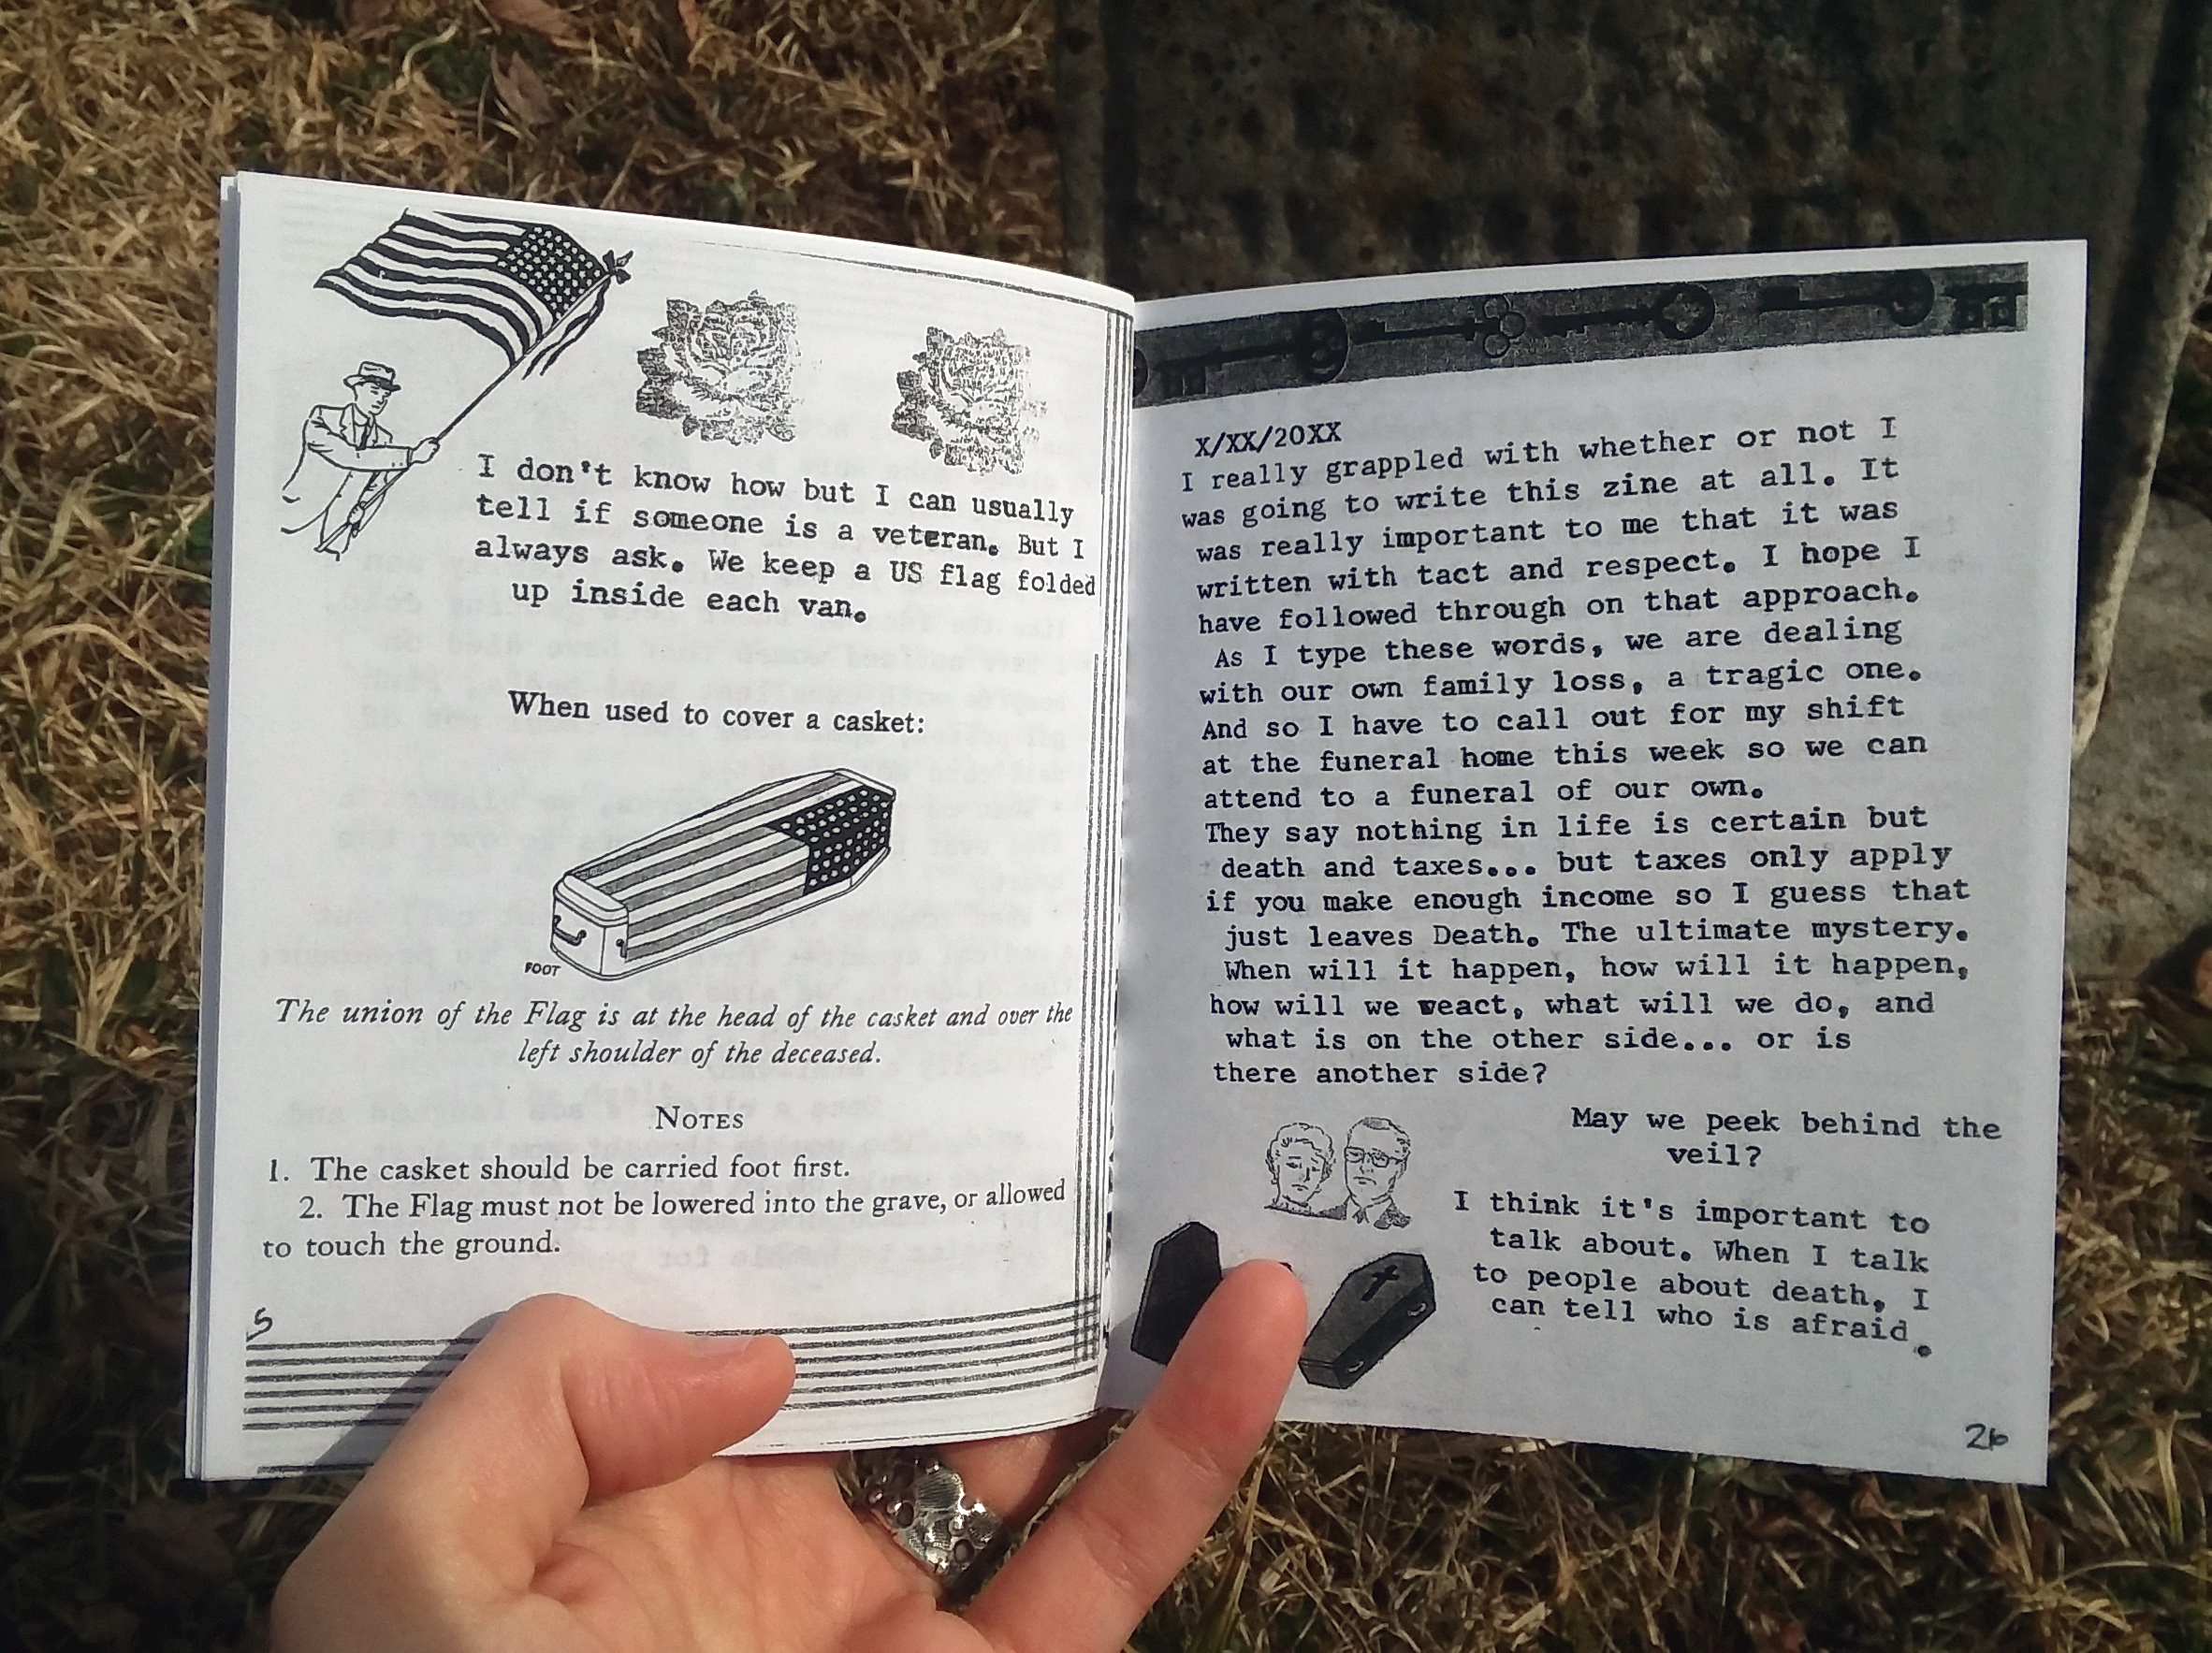 I don't know how but I can usually
tell if someone is a veteran. But I
always ask. We keep a US flag folded
up inside each van.
When used to cover a casket:
FOOT
The union of the Flag is at the head of the casket and over the
left shoulder of the deceased.
NOTES
1. The casket should be carried foot first.
2. The Flag must not be lowered into the grave, or allowed
to touch the ground.
5
X/XX/20XX
I really grappled with whether or not I
was going to write this zine at all. It
was really important to me that it was
written with tact and respect. I hope I
have followed through on that approach.
As I type these words, we are dealing
with our own family loss, a tragic one.
And so I have to call out for my shift
at the funeral home this week so we can
attend to a funeral of our own.
They say nothing in life is certain but
death and taxes... but taxes only apply
if you make enough income so I guess that
just leaves Death. The ultimate mystery.
When will it happen, how will it happen,
how will we react, what will we do, and
what is on the other side... or is
there another side?
May we peek behind the
veil?
I think it's important to
talk about. When I talk
to people about death, I
can tell who is afraid.
26